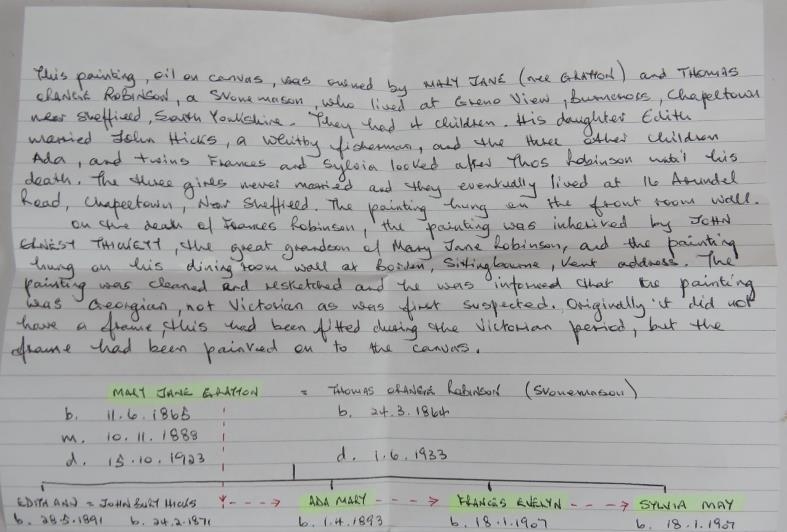 This painting, oil on canvas, was owned by MARY JANE (nee GRATTON) and THOMAS
CRANGIE ROBINSON, a Stonemason, who lived at Greno View, Burncross, Chapeltown
near Sheffield, South Yorkshire. They had 4 children. His daughter Edith
married John Hicks, a Whitby fisherman, and the three other children
Ada, and twins Frances and Sylvia looked after Thos Robinson until his
death. The three girls never married and they eventually lived at 16 Arundel
Road, Chapeltown, Near Sheffield. The painting hung on the front room wall.
On the death of Frances Robinson, the painting was inherited by JOHN
ERNEST, the great grandson of Mary Jane Robinson, and the painting
hung on his dining room wall at Borden, Sittingbourne, Kent address. The
painting was cleaned and restretched and he was informed that the painting
was Georgian, not Victorian as was first suspected. Originally it did not
have a frame, this had been fitted during the Victorian period, but the
frame had been painted on to the canvas.
MARY JANE GRATTON = THOMAS CRANGIE Robinson (Stonemason)
b. 11.6.1865 b. 24.3.1864
m. 10.11.1888
d. 15.10.1923 d. 1.6.1933
EDITH ANN = JOHN BURT HICKS ADA MARY FRANCES EVELYN SYLVIA MAY
b. 28.5.1891 b. 24.2.1871 b. 1.4.1893 b. 18.1.1907 b. 18.1.1907